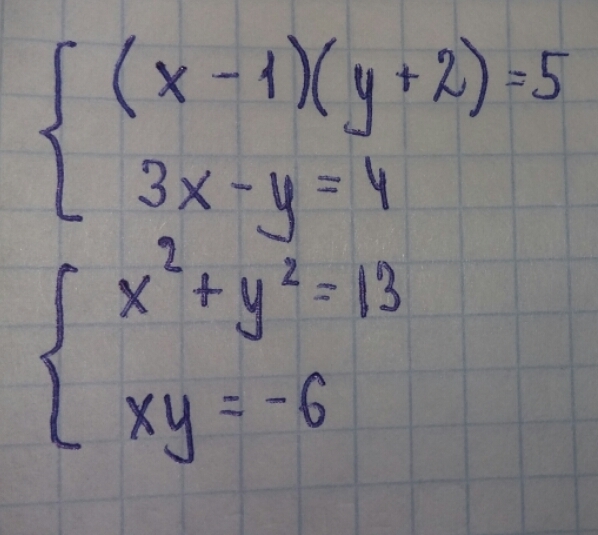 (x - 1)(y + 2) = 5
3x - y = 4
x² + y² = 13
xy = -6